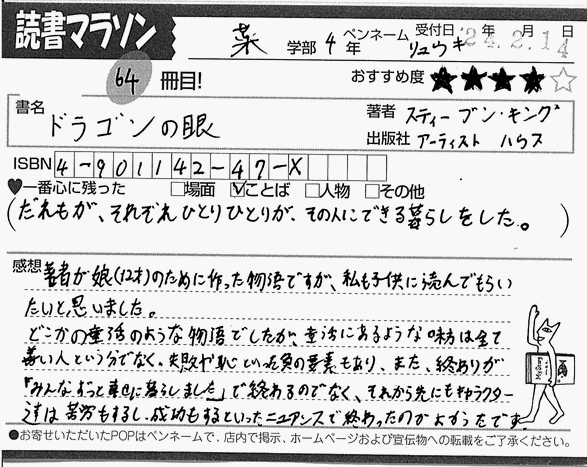 読書マラソン
薬 学部 4 年 ペンネーム リュウキ 受付日 '24年 2.月 14日
64 冊目!
おすすめ度 ★★★★☆
書名 ドラゴンの眼
著者 スティーブン・キング
出版社 アーティスト ハウス
ISBN 4-901142-47-X
♥一番心に残った □場面 ☑ことば □人物 □その他
(だれもが、それぞれひとりひとりが、その人にできる暮らしをした。)
感想 著者が娘(12才)のために作った物語ですが、私も子供に読んでもらい
たいと思いました。
どこかの童話のような物語でしたが、童話にあるような味方は全て
善い人というのでなく、失敗や恥といった負の要素もあり、また、終わりが
「みんなずっと幸せに暮らしました」で終わるのでなく、それから先にもキャラクター
達は苦労もするし、成功もするといったニュアンスで終わったのがよかったです。
●お寄せいただいたPOPはペンネームで、店内で掲示、ホームページおよび宣伝物への転載をご了承ください。